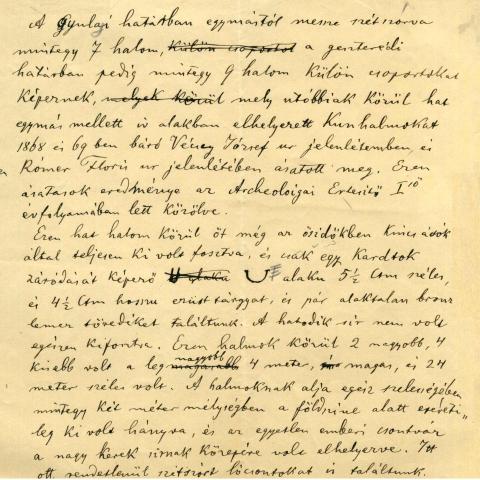 A Gyulaj határban egymástól messze szétszórva
mintegy 7 halom, külön csoportot a geszterédi
határban pedig mintegy 9 halom külön csoportokat
képeznek, melyek körül mely utóbbiak körül hat
egymás mellett ív alakban elhelyezett Kunhalmokat
1868 és 69 ben báró Vécsey József ur jelenlétemben, és
Rómer Floris ur jelenlétében ásatott meg. Ezen
ásatások eredménye az Archeologiai Ertesítő I ső
évfolyamában lett közölve.
Ezen hat halom közül öt még az ősidőkben kincsásók
által teljesen ki volt fosztva, és csak egy kardtok
záródását képező U alaku 5½ Ctm széles,
és 4½ Ctm hosszu ezüst tárgyat, és pár alaktalan bronz
lemez tövedéket találtunk. A hatodik sír nem volt
egészen kifosztva. Ezen halmok közül 2 nagyobb, 4
kisebb volt a leg magasabb nagyobb 4 meter, magas, és 24
meter széles volt. A halmoknak alja egész szélességében
mintegy két méter mélységben a földszine alatt
leg ki volt hányva, és az egyetlen emberi csontvár
a nagy kerek sirnak közepére volt elhelyezve. Itt
ott rendetlenül szétszórt lócsontokat is találtunk.